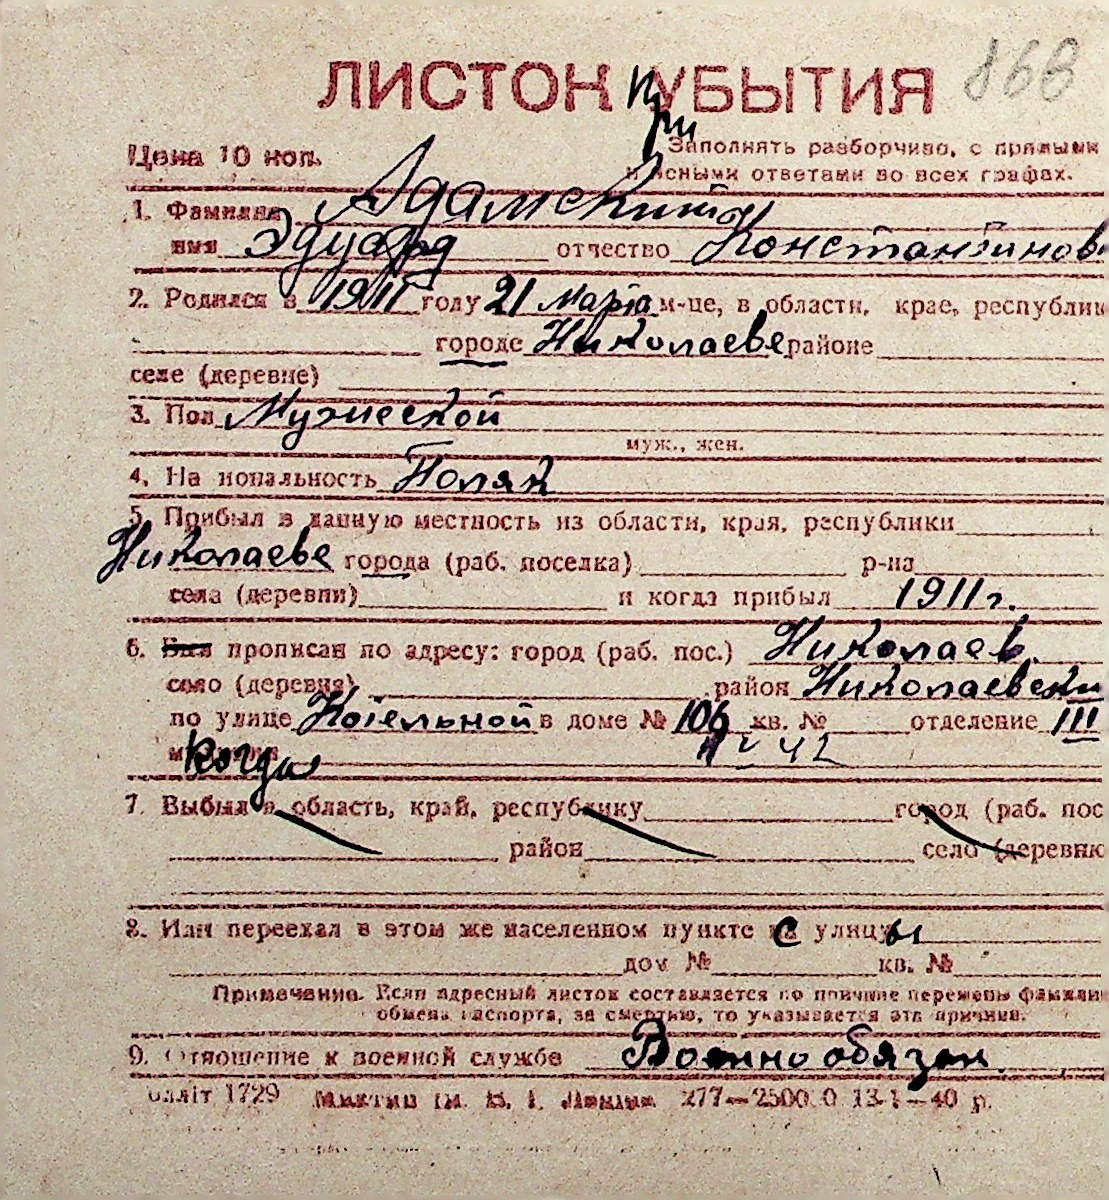 ЛИСТОК УБЫТИЯ 168
при
Цена 10 коп. Заполнять разборчиво, с прямыми
и ясными ответами во всех графах.
1. Фамилия Адамский
имя Эдуард отчество Константинов
2. Родился в 1911 году 21 марта м-це, в области, крае, республик
городе Николаеве районе
селе (деревне)
3. Пол Мужеской
муж., жен.
4. На иональность Поляк
5. Прибыл в данную местность из области, края, республики
Николаеве города (раб. поселка) р-на
села (деревни) и когда прибыл 1911 г.
6. Был прописан по адресу: город (раб. пос.) Николаев
село (деревня) район Николаевски
по улице Котельной в доме № 106 кв. № отделение III
милиции когда 42
7. Выбыл в область, край, республику город (раб. пос
район село (деревню
8. Или переехал в этом же населенном пункте с улицы
дом № кв. №
Примечание. Если адресный листок составляется по причине перемены фамилии
обмена паспорта, за смертию, то указывается эта причина.
9. Отношение к военной службе Военно обязан.
блліт 1729 277—2500 0 13-1—40 р.